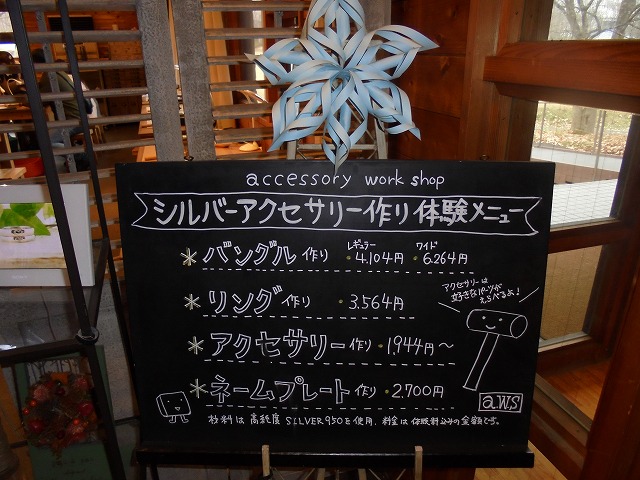 accessory work shop
シルバーアクセサリー作り体験メニュー
＊バングル作り レギュラー・4,104円 ワイド・6,264円
＊リング作り ・3,564円
＊アクセサリー作り ・1,944円〜
＊ネームプレート作り ・2,700円
アクセサリーは
好きなパーツが
えらべるよ！
a.w.s
材料は高純度SILVER950を使用、料金は体験料込みの金額です。